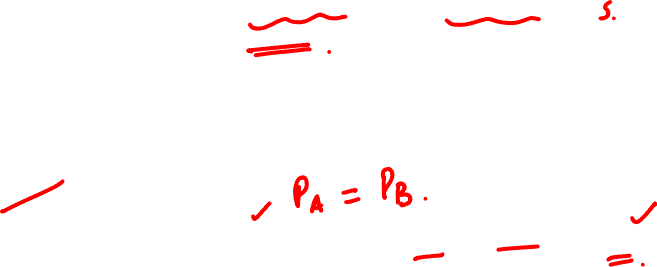 s.
P_A = P_B.